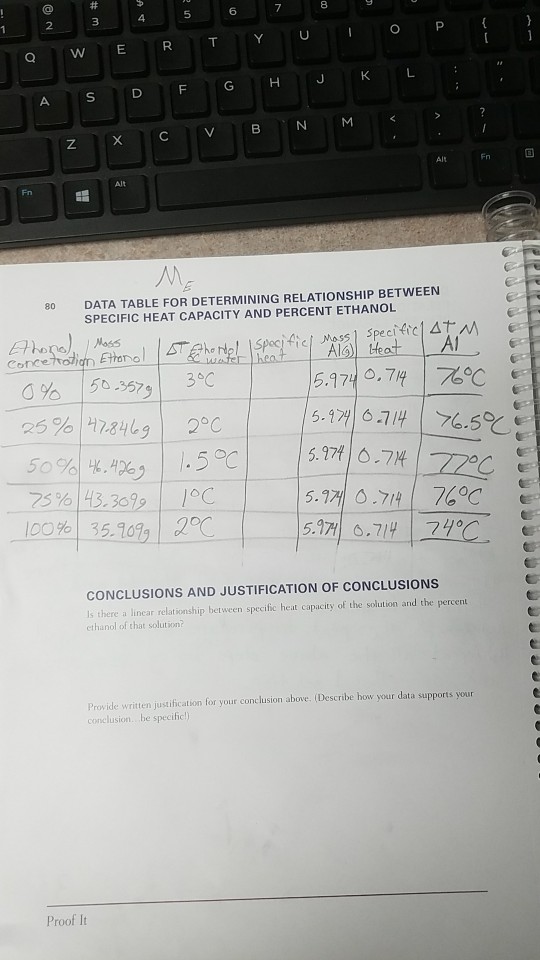 ! @ # $ % 6 7 8 9
1 2 3 4 5
Q W E R T Y U I O P { [ } ]
A S D F G H J K L : ; " '
Z X C V B N M < , > . ? /
Fn Alt Alt Fn
M E
80 DATA TABLE FOR DETERMINING RELATIONSHIP BETWEEN
SPECIFIC HEAT CAPACITY AND PERCENT ETHANOL
Ethanol Mass ΔT Ethanol Specific Mass Specific ΔT M
concetration Ethanol & water heat Al(g) Heat Al
0% 50.357g 3°C 5.974 0.714 76°C
25% 47.846g 2°C 5.974 0.714 76.5°C
50% 46.426g 1.5°C 5.974 0.714 77°C
75% 43.309g 1°C 5.974 0.714 76°C
100% 35.909g 2°C 5.974 0.714 74°C
CONCLUSIONS AND JUSTIFICATION OF CONCLUSIONS
Is there a linear relationship between specific heat capacity of the solution and the percent
ethanol of that solution?
Provide written justification for your conclusion above. (Describe how your data supports your
conclusion...be specific!)
Proof It